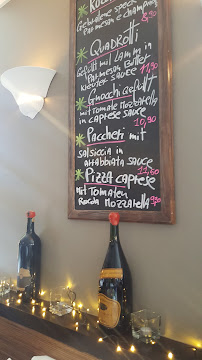 Parmesan e champign
8,90
Quadrotti
Gefüllt mit Lamm in
Parmesan Butter
Kräuter sauce 11,90
Gnocchi gefüllt
mit Tomate Mozzarella
in caprese sauce
10,90
Paccheri mit
salsiccia in
arrabbiata sauce
12,60
Pizza caprese
mit Tomaten
Rucola Mozzarella 9,50